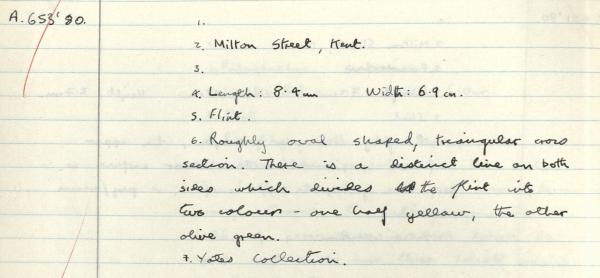 A.653'80.
1.
2. Milton Street, Kent.
3.
4. Length: 8.4 cm Width: 6.9 cm.
5. Flint.
6. Roughly oval shaped, triangular cross
section. There is a distinct line on both
sides which divides the flint into
two colours - one half yellow, the other
olive green.
7. Yates Collection.